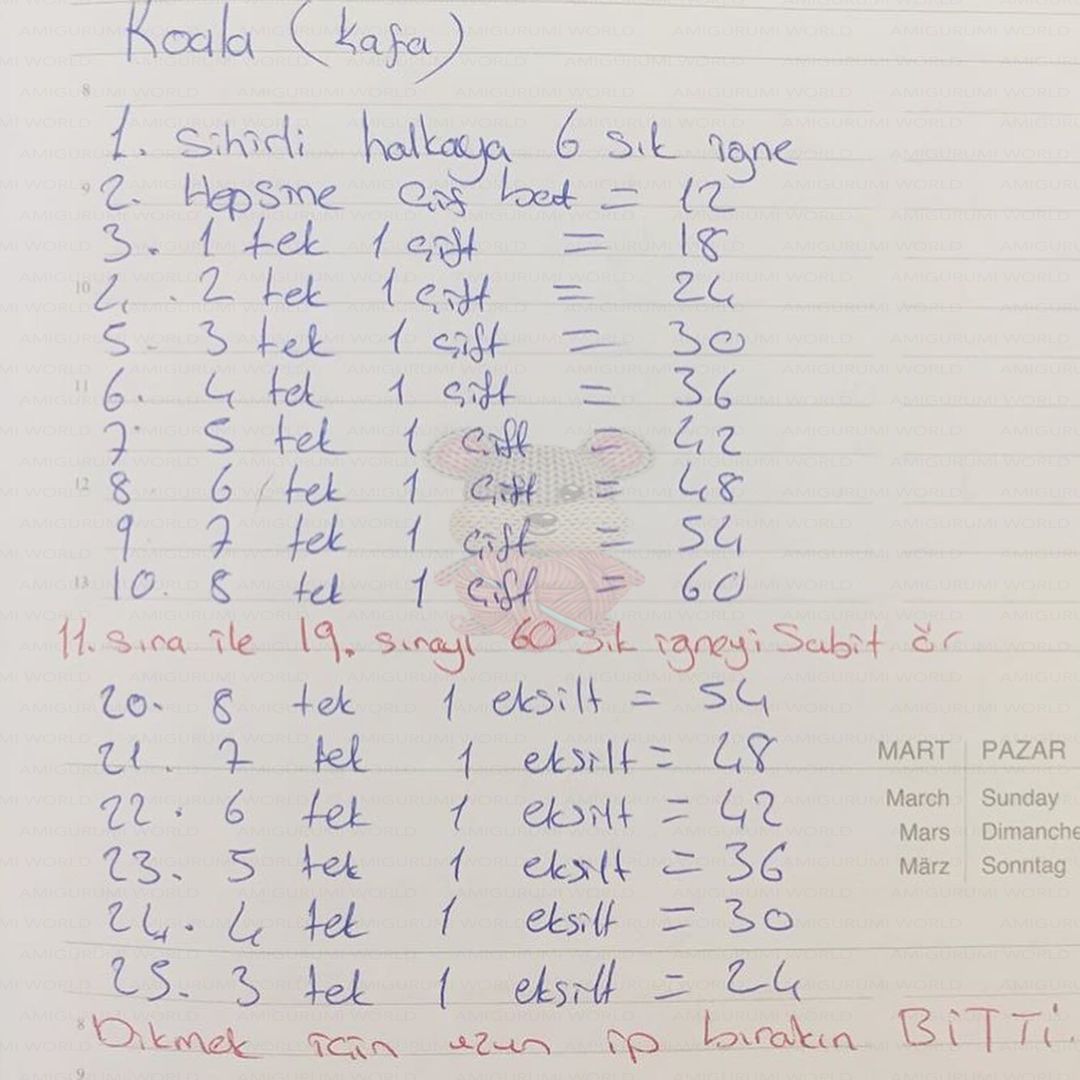 Koala (kafa)
8
1. Sihirli halkaya 6 sık iğne
9
2. Hepsine çift bat = 12
3. 1 tek 1 çift = 18
10
4. 2 tek 1 çift = 24
5. 3 tek 1 çift = 30
11
6. 4 tek 1 çift = 36
7. 5 tek 1 çift = 42
12
8 6 tek 1 çift = 48
9 7 tek 1 çift = 54
13
10. 8 tek 1 çift = 60
11. sıra ile 19. sırayı 60 sık iğneyi Sabit ör
20. 8 tek 1 eksilt = 54
21. 7 tek 1 eksilt = 48
MART PAZAR
22. 6 tek 1 eksilt = 42
March Sunday
Mars Dimanche
23. 5 tek 1 eksilt = 36
März Sonntag
24. 4 tek 1 eksilt = 30
25. 3 tek 1 eksilt = 24
8
Dikmek için uzun ip bırakın BİTTİ.
9
AMIGURUMI WORLD